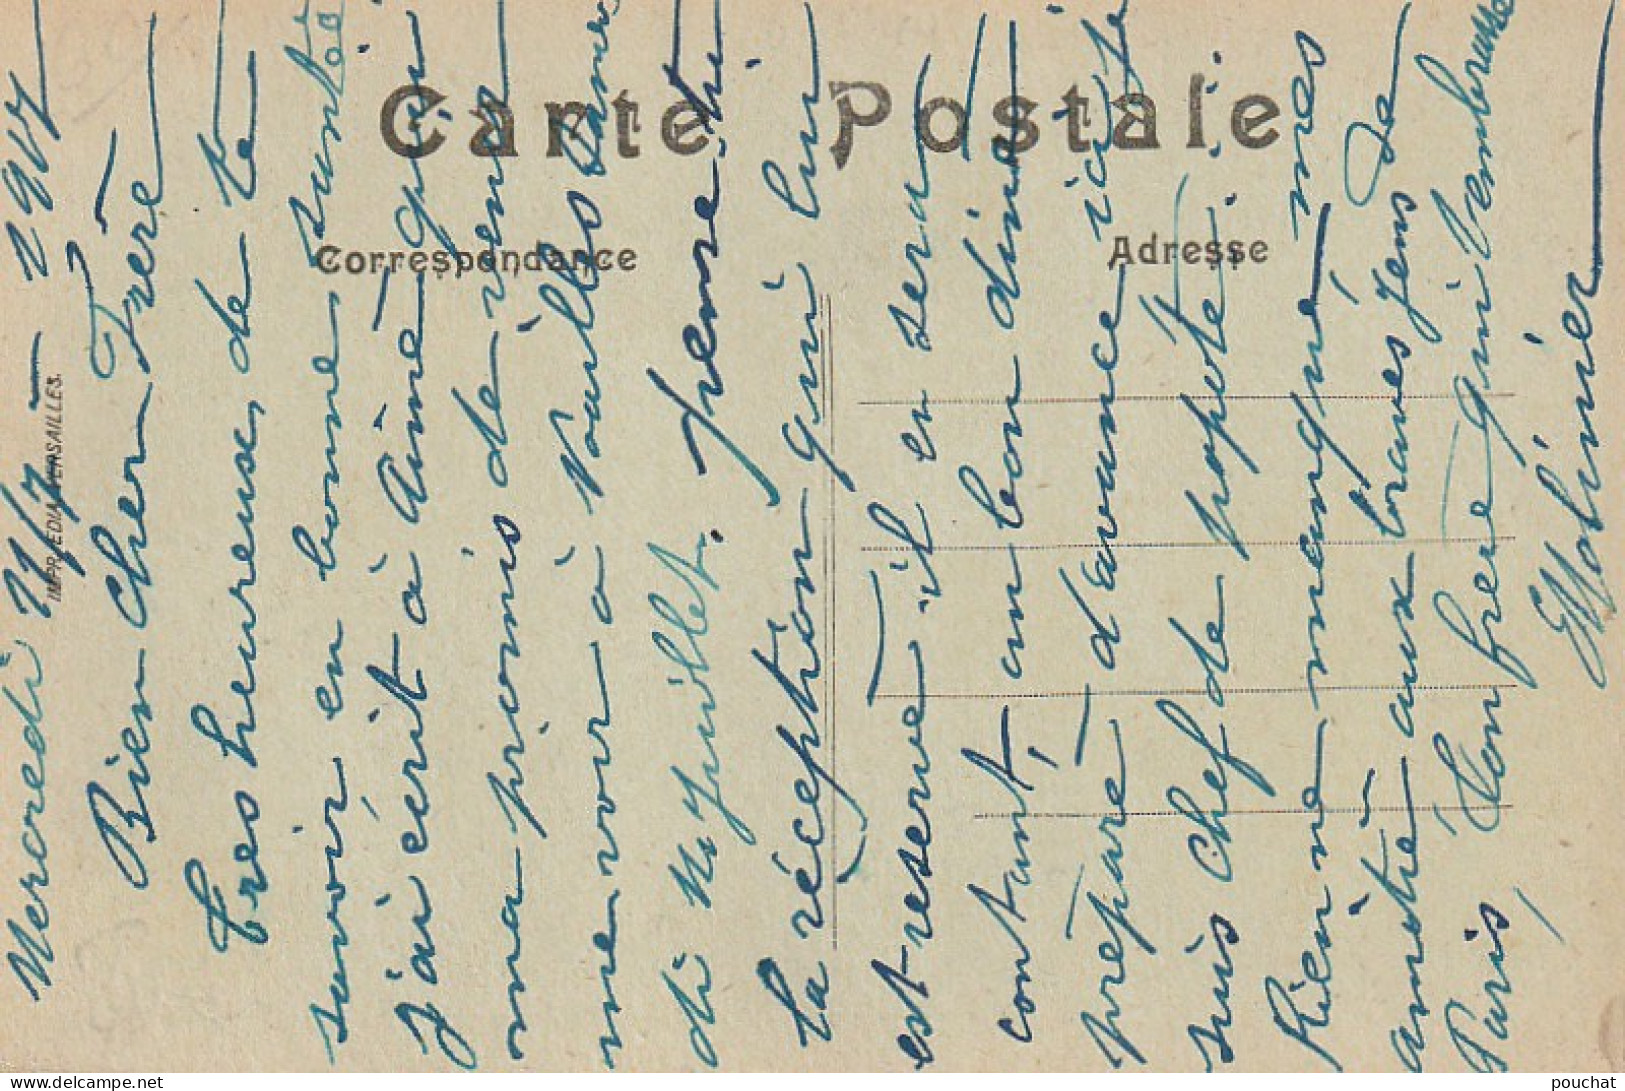 Carte Postale
Correspondance
Adresse
IMPR. EDIA VERSAILLES.
Mercredi
Bien cher Frère
Très heureux, de te
savoir en bonne santée
J'ai écrit à Aimé qui
ma promis de venir
me voir à
di Juillet. 
La réception qui lui
est reservé il en sera
contant, un bon diner
préparé d'avance ici je
suis chef de popote.
Rien ne manque mes
amitié aux braves gens de
Paris, Confrere qui t'embrasse
Molinier
pouchat